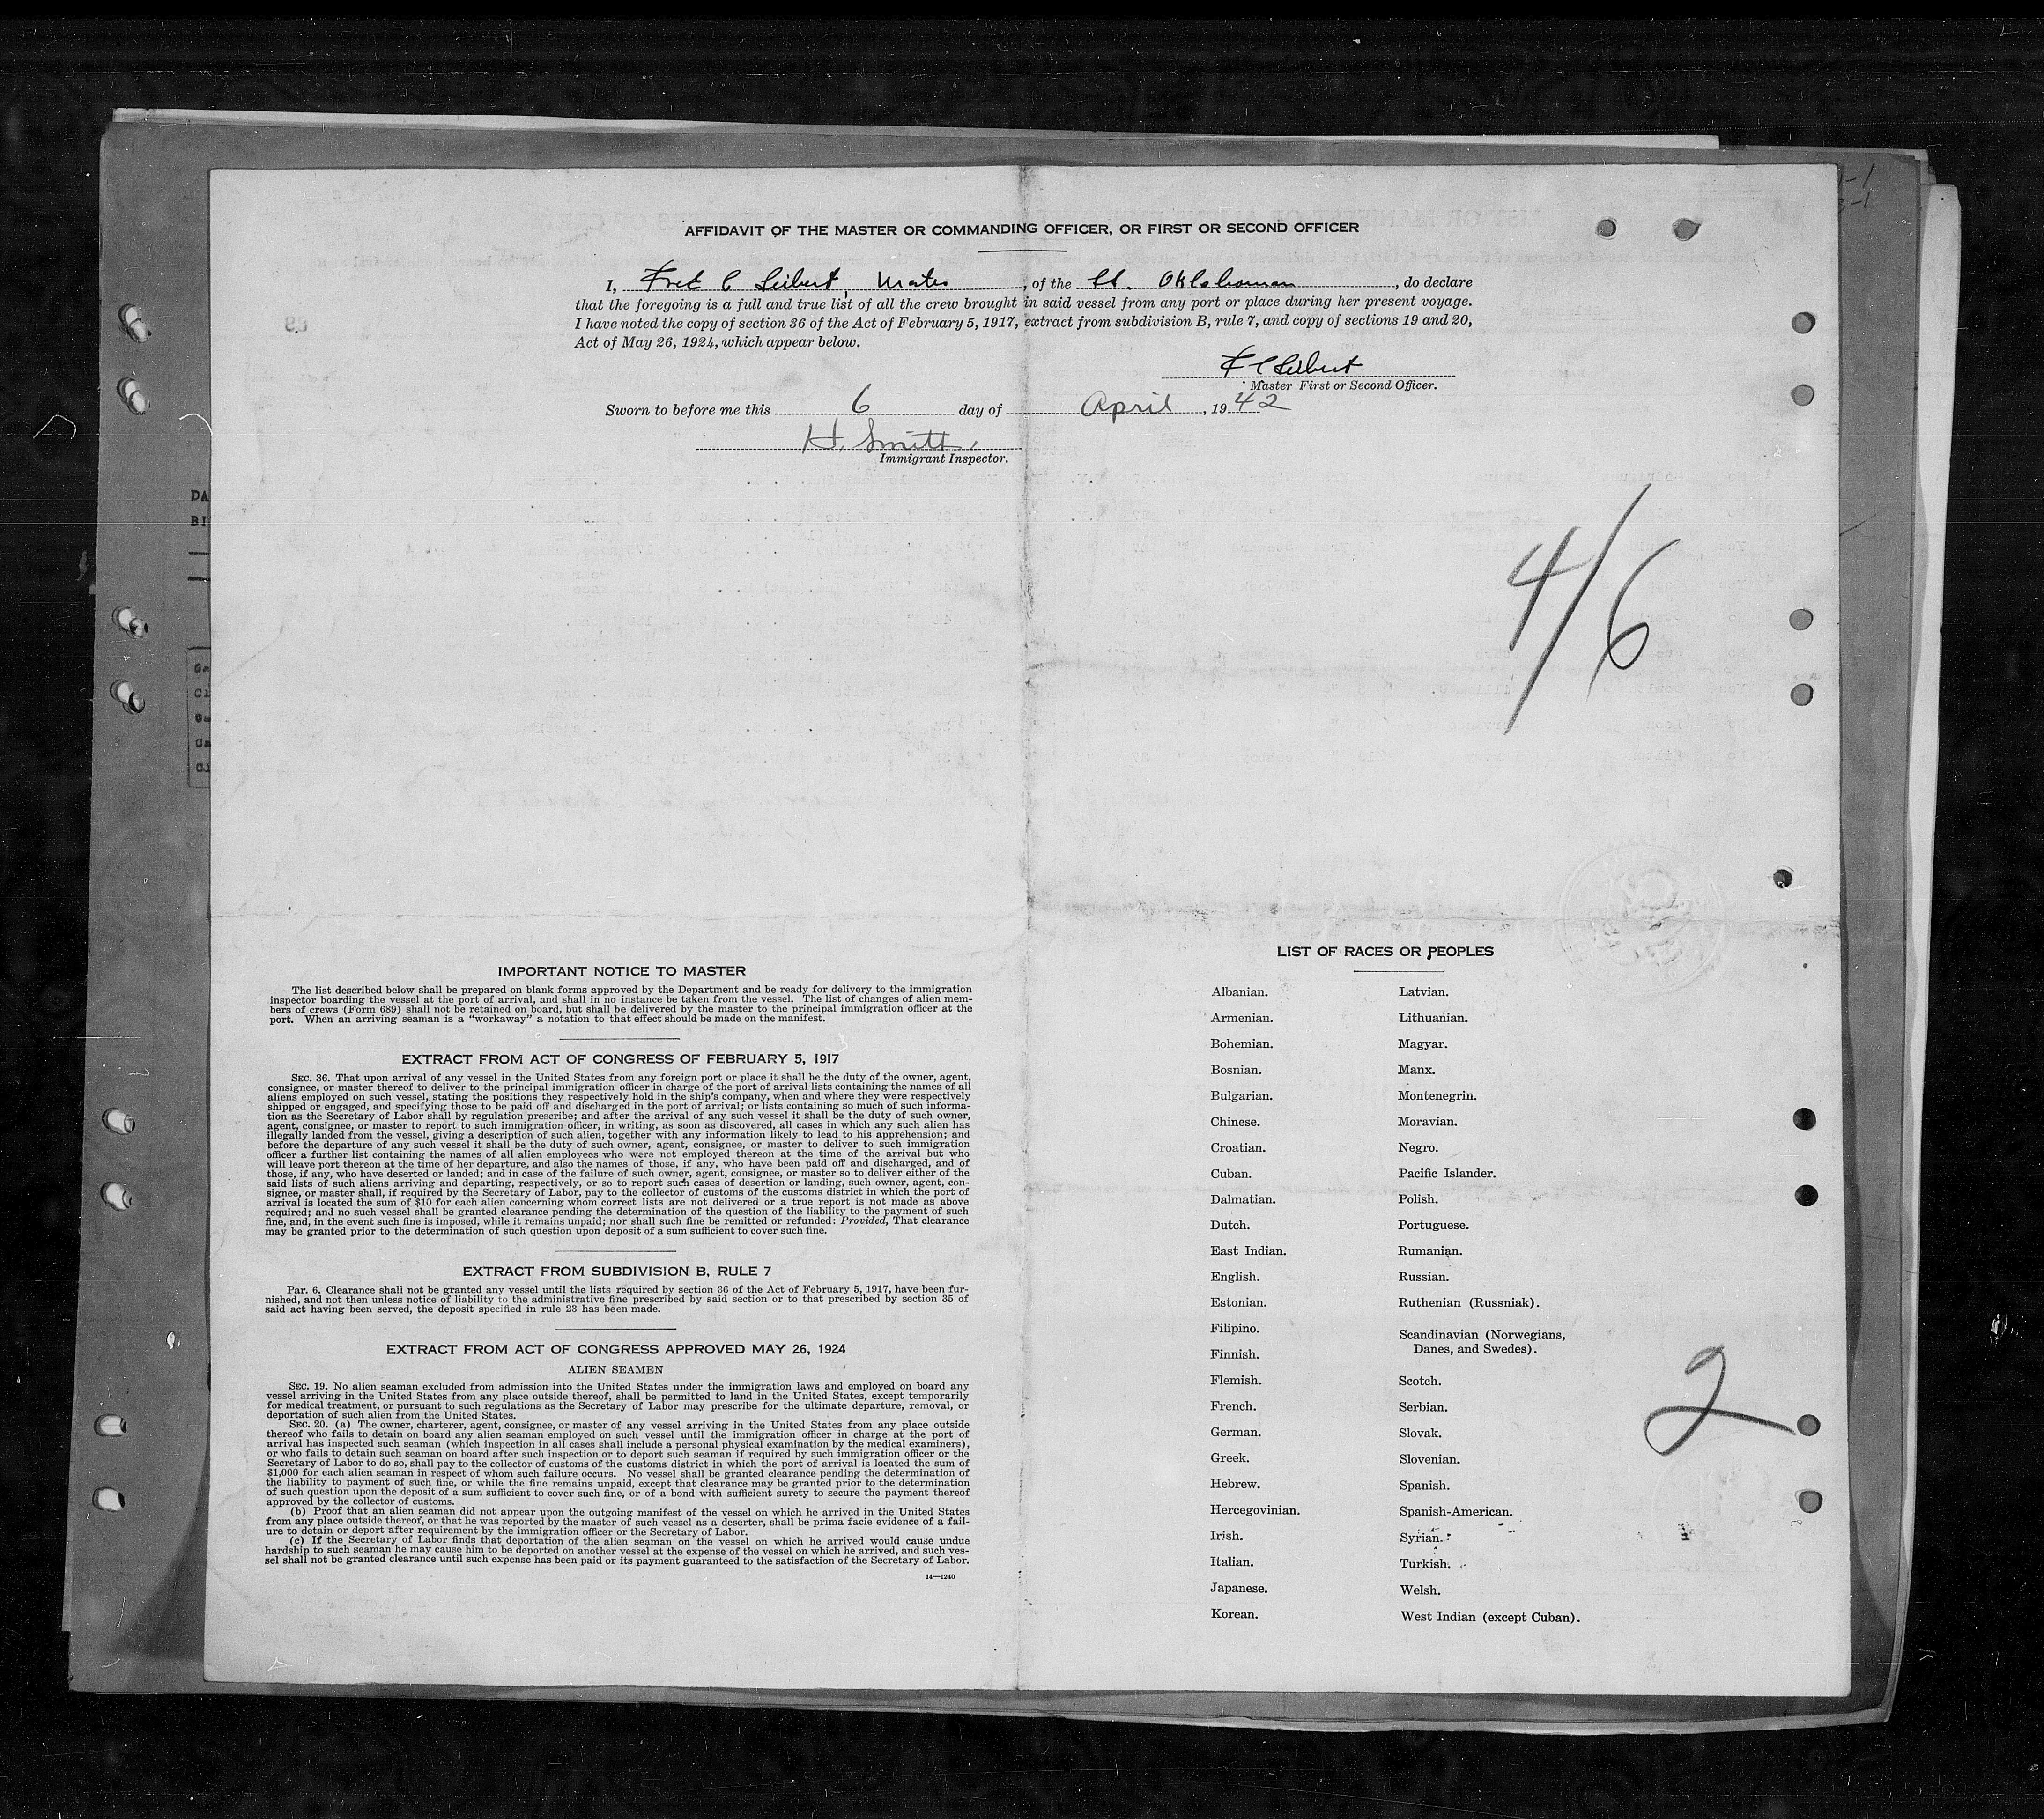 AFFIDAVIT OF THE MASTER OR COMMANDING OFFICER, OR FIRST OR SECOND OFFICER
I, Fred C Seibert, Mates, of the SS. Oklahoman, do declare
that the foregoing is a full and true list of all the crew brought in said vessel from any port or place during her present voyage.
I have noted the copy of section 36 of the Act of February 5, 1917, extract from subdivision B, rule 7, and copy of sections 19 and 20,
Act of May 26, 1924, which appear below.
F C Seibert
Master First or Second Officer.
Sworn to before me this 6 day of April, 1942
H. Smith
Immigrant Inspector.
4/6
IMPORTANT NOTICE TO MASTER
The list described below shall be prepared on blank forms approved by the Department and be ready for delivery to the immigration
inspector boarding the vessel at the port of arrival, and shall in no instance be taken from the vessel. The list of changes of alien mem-
bers of crews (Form 689) shall not be retained on board, but shall be delivered by the master to the principal immigration officer at the
port. When an arriving seaman is a "workaway" a notation to that effect should be made on the manifest.
EXTRACT FROM ACT OF CONGRESS OF FEBRUARY 5, 1917
SEC. 36. That upon arrival of any vessel in the United States from any foreign port or place it shall be the duty of the owner, agent,
consignee, or master thereof to deliver to the principal immigration officer in charge of the port of arrival lists containing the names of all
aliens employed on such vessel, stating the positions they respectively hold in the ship's company, when and where they were respectively
shipped or engaged, and specifying those to be paid off and discharged in the port of arrival; or lists containing so much of such informa-
tion as the Secretary of Labor shall by regulation prescribe; and after the arrival of any such vessel it shall be the duty of such owner,
agent, consignee, or master to report to such immigration officer, in writing, as soon as discovered, all cases in which any such alien has
illegally landed from the vessel, giving a description of such alien, together with any information likely to lead to his apprehension; and
before the departure of any such vessel it shall be the duty of such owner, agent, consignee, or master to deliver to such immigration
officer a further list containing the names of all alien employees who were not employed thereon at the time of the arrival but who
will leave port thereon at the time of her departure, and also the names of those, if any, who have been paid off and discharged, and of
those, if any, who have deserted or landed; and in case of the failure of such owner, agent, consignee, or master so to deliver either of the
said lists of such aliens arriving and departing, respectively, or so to report such cases of desertion or landing, such owner, agent, con-
signee, or master shall, if required by the Secretary of Labor, pay to the collector of customs of the customs district in which the port of
arrival is located the sum of $10 for each alien concerning whom correct lists are not delivered or a true report is not made as above
required; and no such vessel shall be granted clearance pending the determination of the question of the liability to the payment of such
fine, and, in the event such fine is imposed, while it remains unpaid; nor shall such fine be remitted or refunded: Provided, That clearance
may be granted prior to the determination of such question upon deposit of a sum sufficient to cover such fine.
EXTRACT FROM SUBDIVISION B, RULE 7
Par. 6. Clearance shall not be granted any vessel until the lists required by section 36 of the Act of February 5, 1917, have been fur-
nished, and not then unless notice of liability to the administrative fine prescribed by said section or to that prescribed by section 35 of
said act having been served, the deposit specified in rule 23 has been made.
EXTRACT FROM ACT OF CONGRESS APPROVED MAY 26, 1924
ALIEN SEAMEN
SEC. 19. No alien seaman excluded from admission into the United States under the immigration laws and employed on board any
vessel arriving in the United States from any place outside thereof, shall be permitted to land in the United States, except temporarily
for medical treatment, or pursuant to such regulations as the Secretary of Labor may prescribe for the ultimate departure, removal, or
deportation of such alien from the United States.
SEC. 20. (a) The owner, charterer, agent, consignee, or master of any vessel arriving in the United States from any place outside
thereof who fails to detain on board any alien seaman employed on such vessel until the immigration officer in charge at the port of
arrival has inspected such seaman (which inspection in all cases shall include a personal physical examination by the medical examiners),
or who fails to detain such seaman on board after such inspection or to deport such seaman if required by such immigration officer or the
Secretary of Labor to do so, shall pay to the collector of customs of the customs district in which the port of arrival is located the sum of
$1,000 for each alien seaman in respect of whom such failure occurs. No vessel shall be granted clearance pending the determination of
the liability to payment of such fine, or while the fine remains unpaid, except that clearance may be granted prior to the determination
of such question upon the deposit of a sum sufficient to cover such fine, or of a bond with sufficient surety to secure the payment thereof
approved by the collector of customs.
(b) Proof that an alien seaman did not appear upon the outgoing manifest of the vessel on which he arrived in the United States
from any place outside thereof, or that he was reported by the master of such vessel as a deserter, shall be prima facie evidence of a fail-
ure to detain or deport after requirement by the immigration officer or the Secretary of Labor.
(c) If the Secretary of Labor finds that deportation of the alien seaman on the vessel on which he arrived would cause undue
hardship to such seaman he may cause him to be deported on another vessel at the expense of the vessel on which he arrived, and such ves-
sel shall not be granted clearance until such expense has been paid or its payment guaranteed to the satisfaction of the Secretary of Labor.
14—1240
LIST OF RACES OR PEOPLES
Albanian.
Armenian.
Bohemian.
Bosnian.
Bulgarian.
Chinese.
Croatian.
Cuban.
Dalmatian.
Dutch.
East Indian.
English.
Estonian.
Filipino.
Finnish.
Flemish.
French.
German.
Greek.
Hebrew.
Hercegovinian.
Irish.
Italian.
Japanese.
Korean.
Latvian.
Lithuanian.
Magyar.
Manx.
Montenegrin.
Moravian.
Negro.
Pacific Islander.
Polish.
Portuguese.
Rumanian.
Russian.
Ruthenian (Russniak).
Scandinavian (Norwegians,
Danes, and Swedes).
Scotch.
Serbian.
Slovak.
Slovenian.
Spanish.
Spanish-American.
Syrian.
Turkish.
Welsh.
West Indian (except Cuban).
2